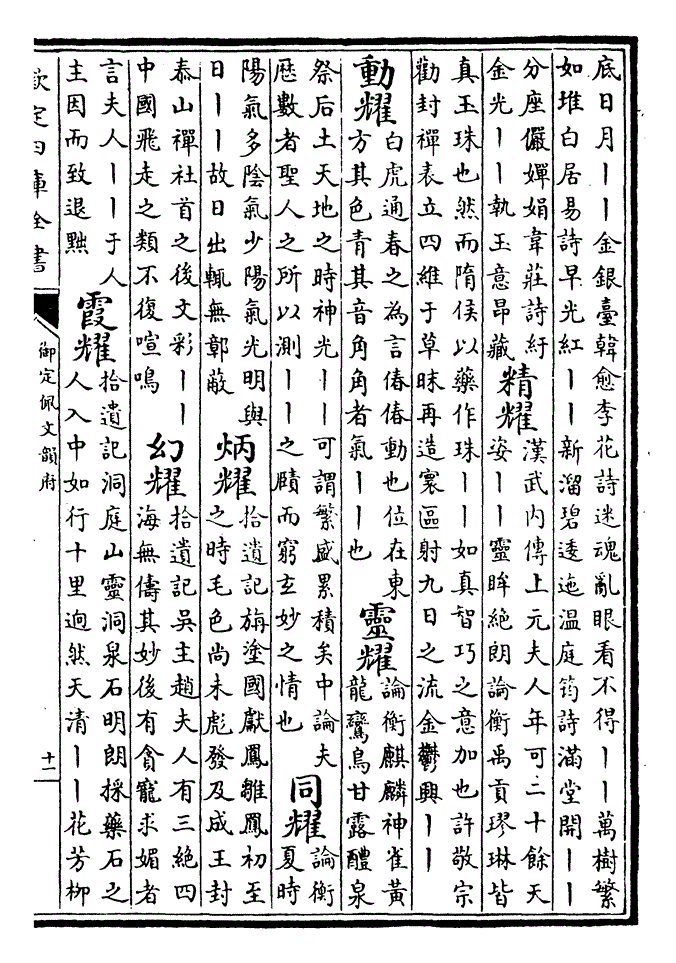 底日月丨丨金銀臺韓愈李花詩迷魂亂眼看不得丨丨萬樹繁
如堆白居易詩早光紅丨丨新溜碧逶迤温庭筠詩滿堂開丨丨
分座儼嬋娟韋莊詩紆
金光丨丨執玉意昂藏
精耀
漢武内傳上元夫人年可二十餘天
姿丨丨靈眸絶朗論衡禹貢璆琳皆
真玉珠也然而隋侯以藥作珠丨丨如真智巧之意加也許敬宗
勸封禪表立四維于草昧再造寰區射九日之流金鬱興丨丨
動耀
白虎通春之為言偆偆動也位在東
方其色青其音角角者氣丨丨也
靈耀
論衡麒麟神雀黃
龍鸞鳥甘露醴泉
祭后土天地之時神光丨丨可謂繁盛累積矣中論夫
厯數者聖人之所以測丨丨之賾而窮玄妙之情也
同耀
論衡
夏時
陽氣多陰氣少陽氣光明與
日丨丨故日出輒無鄣蔽
炳耀
拾遺記旃塗國獻鳳雛鳳初至
之時毛色尚未彪發及成王封
泰山禪社首之後文彩丨丨
中國飛走之類不復喧鳴
幻耀
拾遺記吳主趙夫人有三絶四
海無儔其妙後有貪寵求媚者
言夫人丨丨于人
主因而致退黜
霞耀
拾遺記洞庭山靈洞泉石明朗採藥石之
人入中如行十里迥然天清丨丨花芳柳
欽定四庫全書
御定佩文韻府
十一